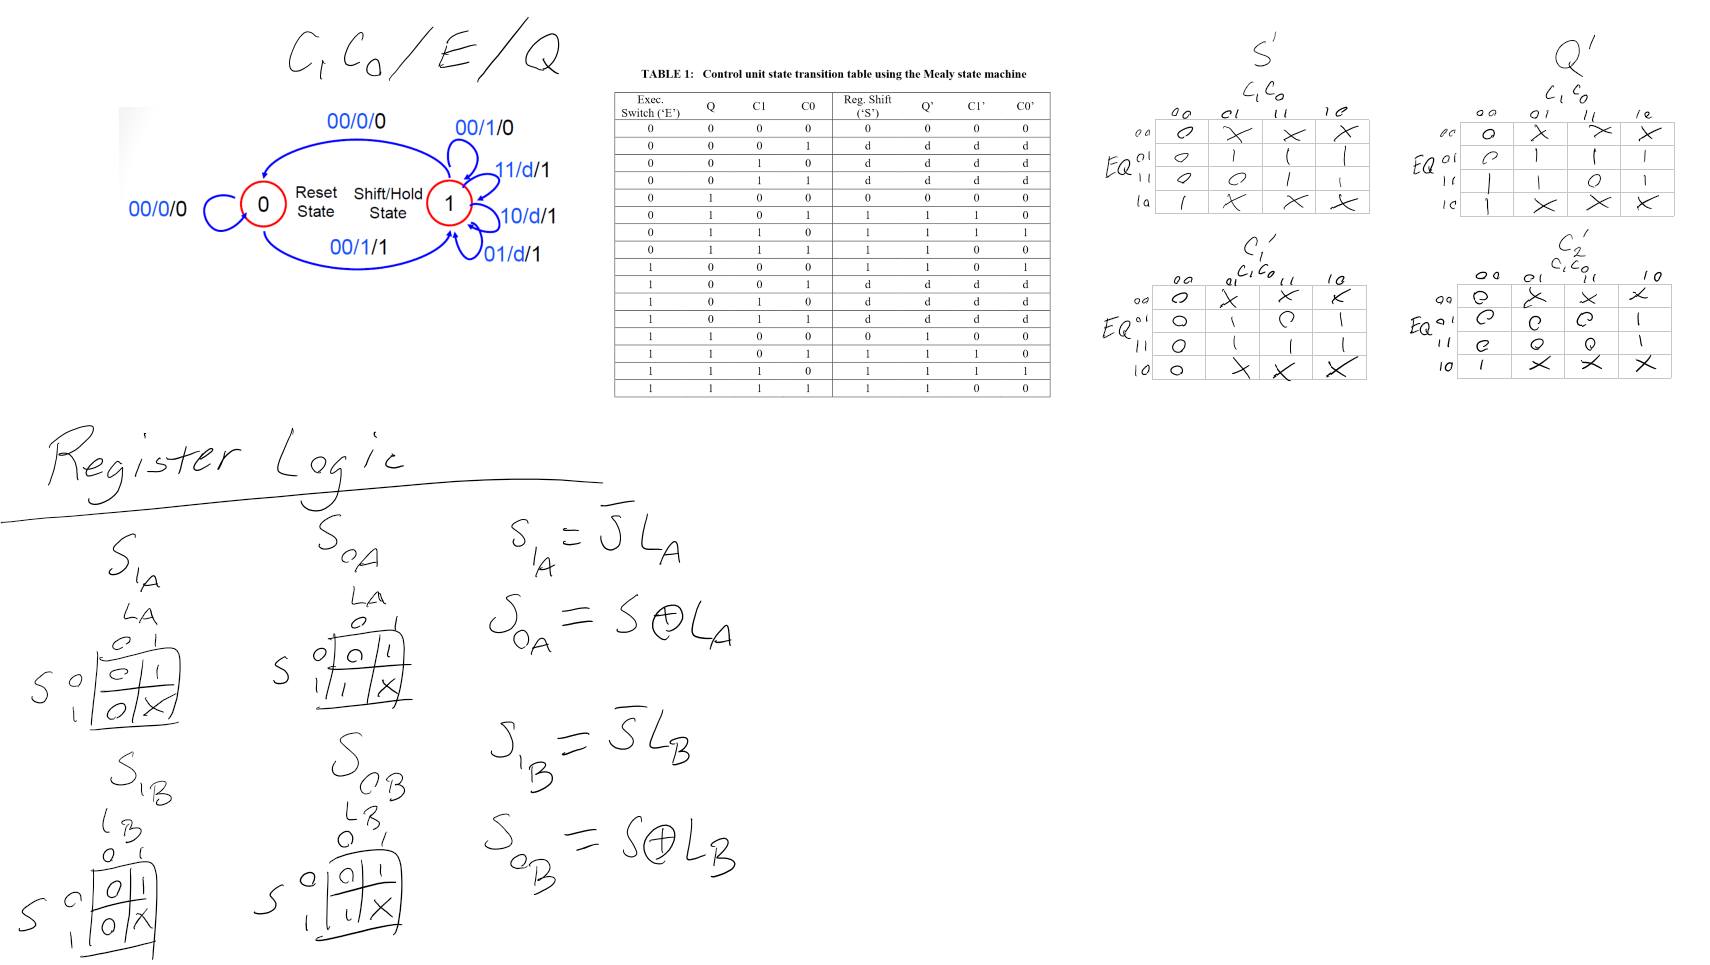 C₁C₀/E/Q
00/0/0
00/1/0
11/d/1
00/0/0
0
Reset
State
Shift/Hold
State
1
10/d/1
00/1/1
01/d/1
TABLE 1: Control unit state transition table using the Mealy state machine
Exec. Switch ('E') Q C1 C0 Reg. Shift ('S') Q' C1' C0'
0 0 0 0 0 0 0 0
0 0 0 1 d d d d
0 0 1 0 d d d d
0 0 1 1 d d d d
0 1 0 0 0 0 0 0
0 1 0 1 1 1 1 0
0 1 1 0 1 1 1 1
0 1 1 1 1 1 0 0
1 0 0 0 1 1 0 1
1 0 0 1 d d d d
1 0 1 0 d d d d
1 0 1 1 d d d d
1 1 0 0 0 1 0 0
1 1 0 1 1 1 1 0
1 1 1 0 1 1 1 1
1 1 1 1 1 1 0 0
S'
C₁C₀
00 01 11 10
00 0 X X X
EQ 01 0 1 1 1
11 0 0 1 1
10 1 X X X
Q'
C₁C₀
00 01 11 10
00 0 X X X
EQ 01 0 1 1 1
11 1 1 0 1
10 1 X X X
C₁'
C₁C₀
00 01 11 10
00 0 X X X
EQ 01 0 1 0 1
11 0 1 1 1
10 0 X X X
C₂'
C₁C₀
00 01 11 10
00 0 X X X
EQ 01 0 0 0 1
11 0 0 0 1
10 1 X X X
Register Logic
S₁A
LA
0 1
S 0 0 1
1 0 X
S₀A
LA
0 1
S 0 0 1
1 1 X
S₁A = S̅ LA
S₀A = S⊕LA
S₁B
LB
0 1
S 0 0 1
1 0 X
S₀B
LB
0 1
S 0 0 1
1 1 X
S₁B = S̅ LB
S₀B = S⊕LB